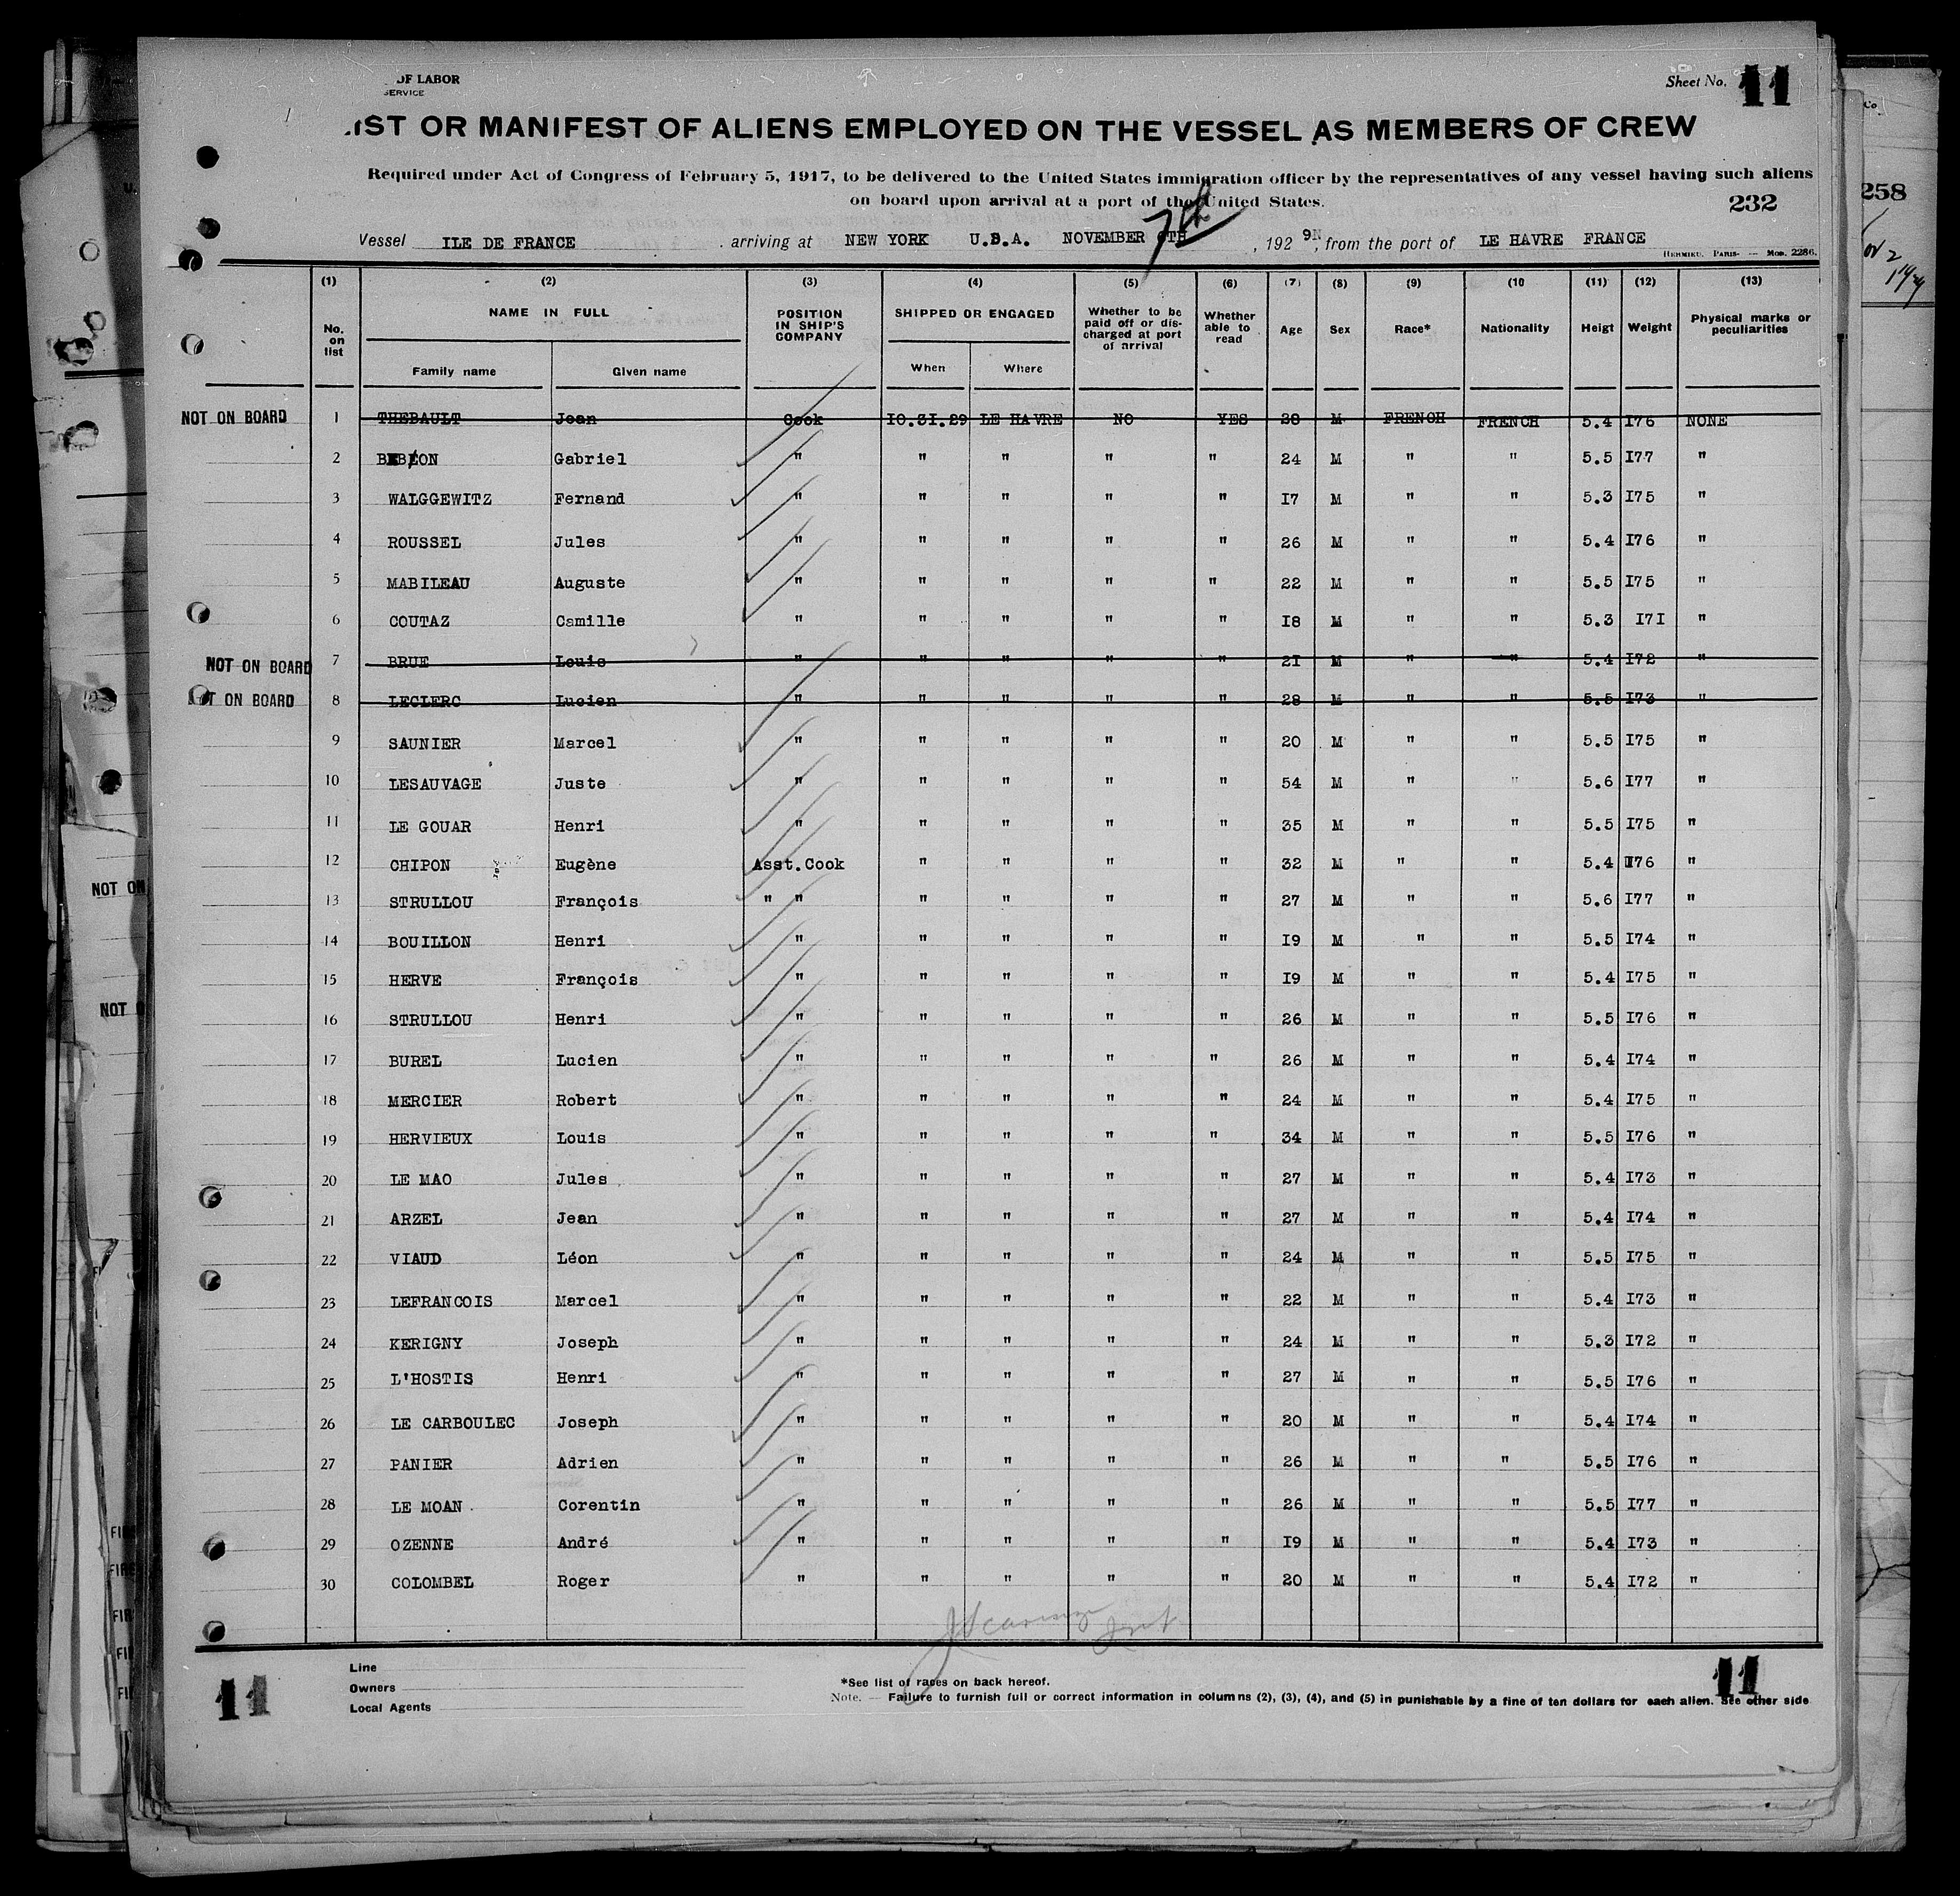 OF LABOR
SERVICE
Sheet No. 11
LIST OR MANIFEST OF ALIENS EMPLOYED ON THE VESSEL AS MEMBERS OF CREW
Required under Act of Congress of February 5, 1917, to be delivered to the United States immigration officer by the representatives of any vessel having such aliens
on board upon arrival at a port of the United States.
232
Vessel ILE DE FRANCE arriving at NEW YORK U.S.A. NOVEMBER 7th, 1929, from the port of LE HAVRE FRANCE
HERMIEU. PARIS- — Mod. 2286.
(1) (2) (3) (4) (5) (6) (7) (8) (9) (10 (11) (12) (13)
No. on list NAME IN FULL POSITION IN SHIP'S COMPANY SHIPPED OR ENGAGED Whether to be paid off or discharged at port of arrival Whether able to read Age Sex Race* Nationality Heigt Weight Physical marks or peculiarities
Family name Given name When Where
NOT ON BOARD 1 THEBAULT Jean Cook 10.31.29 LE HAVRE NO YES 28 M FRENCH FRENCH 5.4 176 NONE
2 Gabriel " " " " " 24 M " " 5.5 177 "
3 WALGGEWITZ Fernand " " " " " 17 M " " 5.3 175 "
4 ROUSSEL Jules " " " " " 26 M " " 5.4 176 "
5 MABILEAU Auguste " " " " " 22 M " " 5.5 175 "
6 COUTAZ Camille " " " " " 18 M " " 5.3 171 "
NOT ON BOARD 7 BRUE Louis " " " " " 21 M " " 5.4 172 "
NOT ON BOARD 8 LECLERC Lucien " " " " " 28 M " " 5.5 173 "
9 SAUNIER Marcel " " " " " 20 M " " 5.5 175 "
10 LESAUVAGE Juste " " " " " 54 M " " 5.6 177 "
11 LE GOUAR Henri " " " " " 35 M " " 5.5 175 "
12 CHIPON Eugène Asst.Cook " " " " 32 M " " 5.4 176 "
13 STRULLOU François " " " " " " 27 M " " 5.6 177 "
14 BOUILLON Henri " " " " " 19 M " " 5.5 174 "
15 HERVE François " " " " " 19 M " " 5.4 175 "
16 STRULLOU Henri " " " " " 26 M " " 5.5 176 "
17 BUREL Lucien " " " " " 26 M " " 5.4 174 "
18 MERCIER Robert " " " " " 24 M " " 5.4 175 "
19 HERVIEUX Louis " " " " " 34 M " " 5.5 176 "
20 LE MAO Jules " " " " " 27 M " " 5.4 173 "
21 ARZEL Jean " " " " " 27 M " " 5.4 174 "
22 VIAUD Léon " " " " " 24 M " " 5.5 175 "
23 LEFRANCOIS Marcel " " " " " 22 M " " 5.4 173 "
24 KERIGNY Joseph " " " " " 24 M " " 5.3 172 "
25 L'HOSTIS Henri " " " " " 27 M " " 5.5 176 "
26 LE CARBOULEC Joseph " " " " " 20 M " " 5.4 174 "
27 PANIER Adrien " " " " " 26 M " " 5.5 176 "
28 LE MOAN Corentin " " " " " 26 M " " 5.5 177 "
29 OZENNE André " " " " " 19 M " " 5.4 173 "
30 COLOMBEL Roger " " " " " 20 M " " 5.4 172 "
Line
Owners
Local Agents
*See list of races on back hereof.
Note. — Failure to furnish full or correct information in columns (2), (3), (4), and (5) in punishable by a fine of ten dollars for each alien. See other side
11
11
258
NOT ON
NOT O